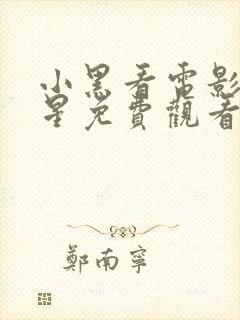 小黑看電影
星免費觀看
鄭南寧